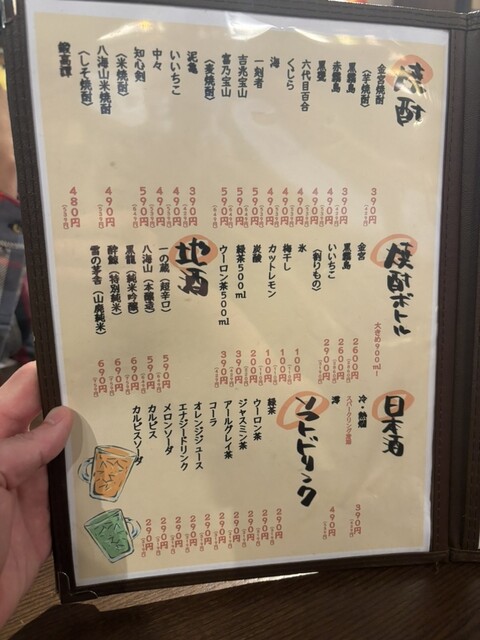 焼酎
金宮焼酎 390円
(芋焼酎)
黒霧島 390円
赤霧島 490円
黒甕 490円
六代目百合 490円
くじら 490円
海 490円
一刻者 590円
吉兆宝山 590円
富乃宝山 590円
(麦焼酎)
泥亀 390円
いいちこ 490円
中々 490円
知心剣 590円
(米焼酎)
八海山米焼酎 490円
(しそ焼酎)
鍛高譚 480円
焼酎ボトル
大きめ900ml
金宮 2600円
黒霧島 2600円
いいちこ 2900円
(割りもの)
氷 100円
梅干し 100円
カットレモン 100円
炭酸 200円
緑茶500ml 390円
ウーロン茶500ml 390円
地酒
一の蔵(超辛口) 590円
八海山(本醸造) 590円
黒龍(純米吟醸) 690円
酔鯨(特別純米) 690円
雪の茅舎(山廃純米) 690円
日本酒
冷・熱燗 390円
スパークリング清酒
澪 490円
ソフトドリンク
緑茶 290円
ウーロン茶 290円
ジャスミン茶 290円
アールグレイ茶 290円
コーラ 290円
オレンジジュース 290円
エナジードリンク 290円
メロンソーダ 290円
カルピス 290円
カルピスソーダ 290円